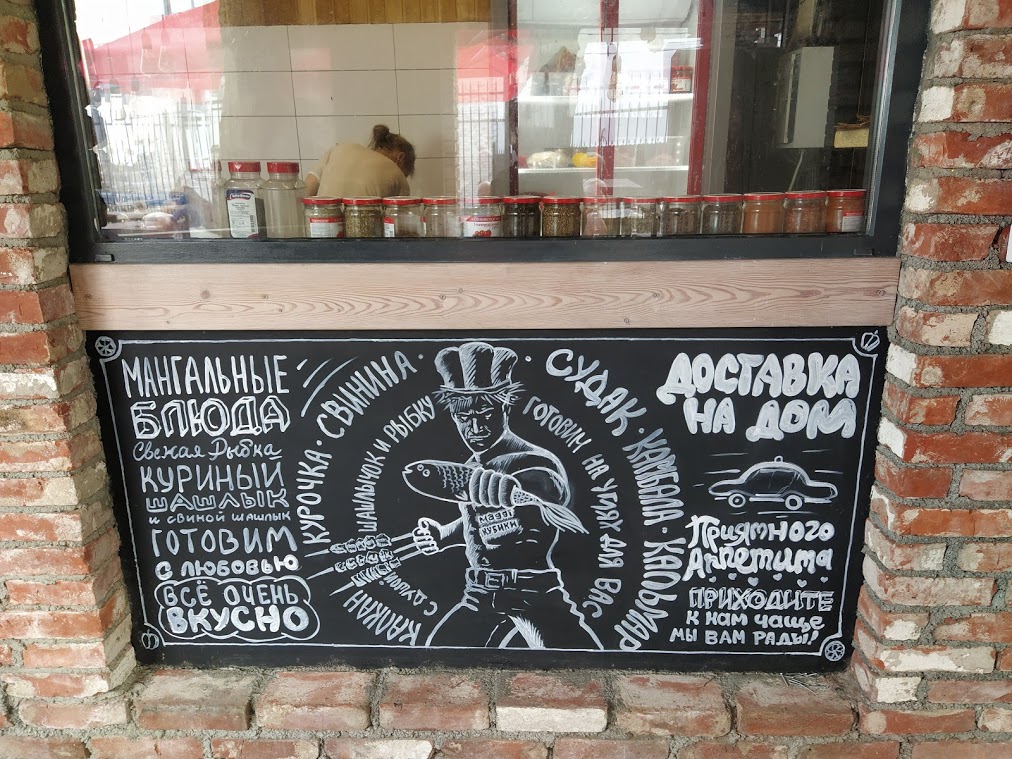 МАНГАЛЬНЫЕ
БЛЮДА
Свежая Рыбка
КУРИНЫЙ
ШАШЛЫК
и свиной шашлык
ГОТОВИМ
С ЛЮБОВЬЮ
ВСЁ ОЧЕНЬ
ВКУСНО
КАЛКАН · КУРОЧКА · СВИНИНА · СУДАК · КАМБАЛА · КАЛЬМАР
С ДУШОЙ ШАШЛЫЧОК И РЫБКУ ГОТОВИМ НА УГЛЯХ ДЛЯ ВАС
MAGGI
КУБИКИ
ДОСТАВКА
НА ДОМ
Приятного
Аппетита
ПРИХОДИТЕ
К НАМ ЧАЩЕ
МЫ ВАМ РАДЫ!